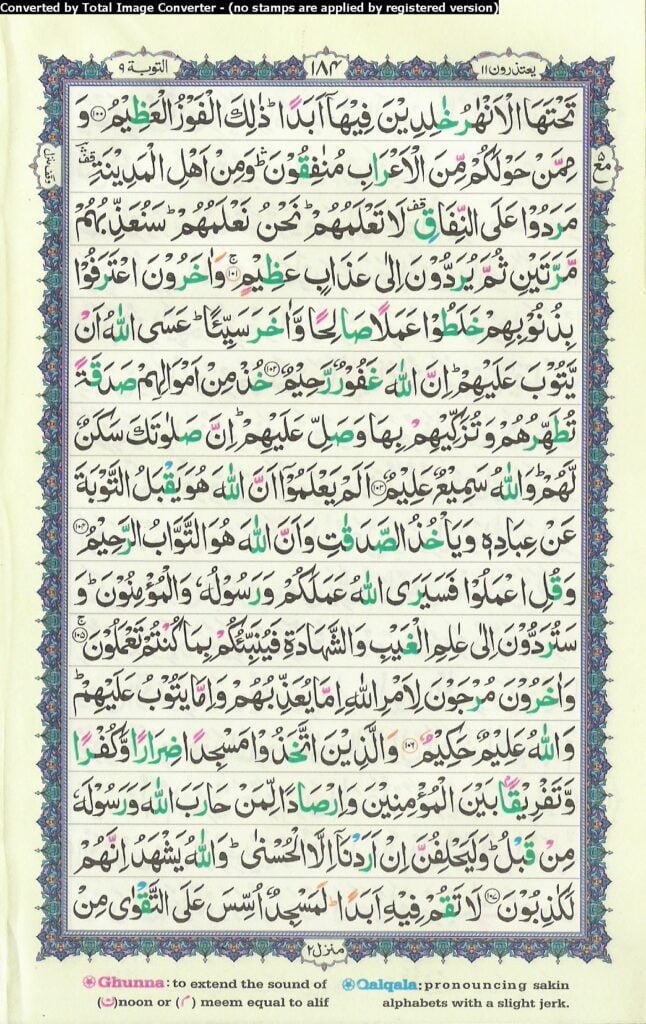 Converted by Total Image Converter - (no stamps are applied by registered version)
يعتذرون ١١ ١٨٤ التوبة ٩
تَحْتَهَا الْاَنْهٰرُ خٰلِدِيْنَ فِيْهَاۤ اَبَدًا ؕ ذٰلِكَ الْفَوْزُ الْعَظِيْمُ ﴿۱۰۰﴾ وَ
مِمَّنْ حَوْلَكُمْ مِّنَ الْاَعْرَابِ مُنٰفِقُوْنَ ؕۛ وَمِنْ اَهْلِ الْمَدِيْنَةِ ؔۛ
مَرَدُوْا عَلَى النِّفَاقِ ۫ لَا تَعْلَمُهُمْ ؕ نَحْنُ نَعْلَمُهُمْ ؕ سَنُعَذِّبُهُمْ
مَّرَّتَيْنِ ثُمَّ يُرَدُّوْنَ اِلٰى عَذَابٍ عَظِيْمٍ ﴿۱۰۱﴾ۚ وَاٰخَرُوْنَ اعْتَرَفُوْا
بِذُنُوْبِهِمْ خَلَطُوْا عَمَلًا صَالِحًا وَّاٰخَرَ سَيِّئًا ؕ عَسَى اللّٰهُ اَنْ
يَّتُوْبَ عَلَيْهِمْ ؕ اِنَّ اللّٰهَ غَفُوْرٌ رَّحِيْمٌ ﴿۱۰۲﴾ خُذْ مِنْ اَمْوَالِهِمْ صَدَقَةً
تُطَهِّرُهُمْ وَتُزَكِّيْهِمْ بِهَا وَصَلِّ عَلَيْهِمْ ؕ اِنَّ صَلٰوتَكَ سَكَنٌ
لَّهُمْ ؕ وَاللّٰهُ سَمِيْعٌ عَلِيْمٌ ﴿۱۰۳﴾ اَلَمْ يَعْلَمُوْۤا اَنَّ اللّٰهَ هُوَ يَقْبَلُ التَّوْبَةَ
عَنْ عِبَادِهٖ وَيَاْخُذُ الصَّدَقٰتِ وَاَنَّ اللّٰهَ هُوَ التَّوَّابُ الرَّحِيْمُ ﴿۱۰۴﴾
وَقُلِ اعْمَلُوْا فَسَيَرَى اللّٰهُ عَمَلَكُمْ وَرَسُوْلُهٗ وَالْمُؤْمِنُوْنَ ؕ وَ
سَتُرَدُّوْنَ اِلٰى عٰلِمِ الْغَيْبِ وَالشَّهَادَةِ فَيُنَبِّئُكُمْ بِمَا كُنْتُمْ تَعْمَلُوْنَ ﴿۱۰۵﴾ۚ
وَاٰخَرُوْنَ مُرْجَوْنَ لِاَمْرِ اللّٰهِ اِمَّا يُعَذِّبُهُمْ وَاِمَّا يَتُوْبُ عَلَيْهِمْ ؕ
وَاللّٰهُ عَلِيْمٌ حَكِيْمٌ ﴿۱۰۶﴾ وَالَّذِيْنَ اتَّخَذُوْا مَسْجِدًا ضِرَارًا وَّكُفْرًا
وَّتَفْرِيْقًۢا بَيْنَ الْمُؤْمِنِيْنَ وَاِرْصَادًا لِّمَنْ حَارَبَ اللّٰهَ وَرَسُوْلَهٗ
مِنْ قَبْلُ ؕ وَلَيَحْلِفُنَّ اِنْ اَرَدْنَاۤ اِلَّا الْحُسْنٰى ؕ وَاللّٰهُ يَشْهَدُ اِنَّهُمْ
لَكٰذِبُوْنَ ﴿۱۰۷﴾ لَا تَقُمْ فِيْهِ اَبَدًا ؕ لَمَسْجِدٌ اُسِّسَ عَلَى التَّقْوٰى مِنْ
منزل ٢
Ghunna: to extend the sound of (ن) noon or (م) meem equal to alif
Qalqala: pronouncing sakin alphabets with a slight jerk.